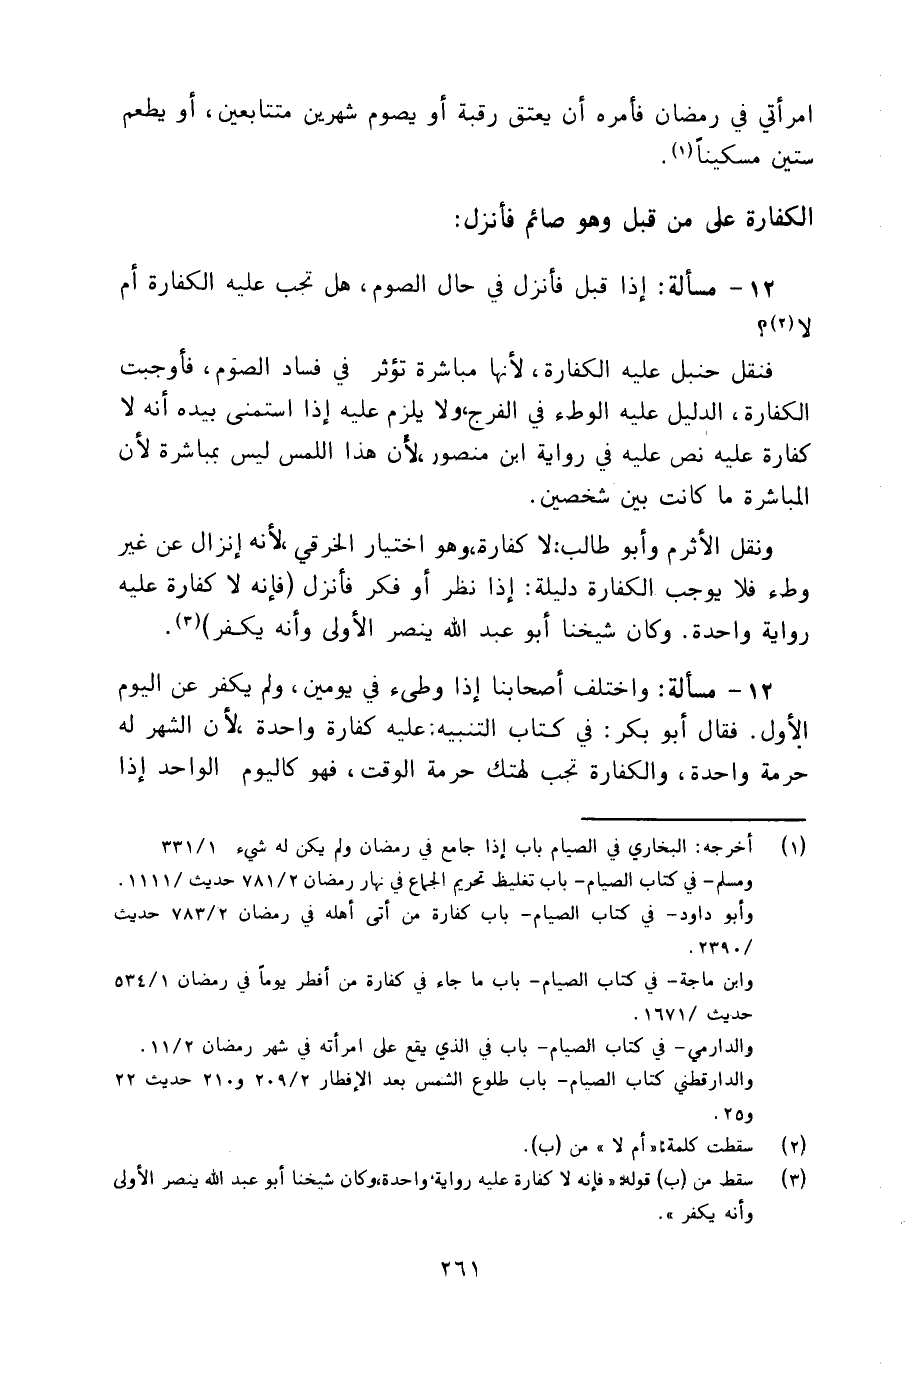 امرأتي في رمضان فأمره أن يعتق رقبة أو يصوم شهرين متتابعين، أو يطعم
ستين مسكيناً(١).
الكفارة على من قبل وهو صائم فأنزل:
١٢ - مسألة: إذا قبل فأنزل في حال الصوم، هل تجب عليه الكفارة أم
لا(٢)؟
فنقل حنبل عليه الكفارة، لأنها مباشرة تؤثر في فساد الصوم، فأوجبت
الكفارة، الدليل عليه الوطء في الفرج،ولا يلزم عليه إذا استمنى بيده أنه لا
كفارة عليه نص عليه في رواية ابن منصور ،لأن هذا اللمس ليس بمباشرة لأن
المباشرة ما كانت بين شخصين.
ونقل الأثرم وأبو طالب:لا كفارة،وهو اختيار الخرقي ،لأنه إنزال عن غير
وطء فلا يوجب الكفارة دليلة: إذا نظر أو فكر فأنزل (فإنه لا كفارة عليه
رواية واحدة. وكان شيخنا أبو عبد الله ينصر الأولى وأنه يكفر)(٣).
١٢ - مسألة: واختلف أصحابنا إذا وطىء في يومين، ولم يكفر عن اليوم
الأول. فقال أبو بكر: في كتاب التنبيه:عليه كفارة واحدة ،لأن الشهر له
حرمة واحدة، والكفارة تجب لهتك حرمة الوقت، فهو كاليوم الواحد إذا
(١) أخرجه: البخاري في الصيام باب إذا جامع في رمضان ولم يكن له شيء ٣٣١/١
ومسلم- في كتاب الصيام- باب تغليظ تحريم الجماع في نهار رمضان ٧٨١/٢ حديث /١١١١.
وأبو داود- في كتاب الصيام- باب كفارة من أتى أهله في رمضان ٧٨٣/٢ حديث
/٢٣٩٠.
وابن ماجة- في كتاب الصيام- باب ما جاء في كفارة من أفطر يوماً في رمضان ٥٣٤/١
حديث /١٦٧١.
والدارمي- في كتاب الصيام- باب في الذي يقع على امرأته في شهر رمضان ١١/٢.
والدارقطني كتاب الصيام- باب طلوع الشمس بعد الإفطار ٢٠٩/٢ و٢١٠ حديث ٢٢
و٢٥.
(٢) سقطت كلمة:«أم لا» من (ب).
(٣) سقط من (ب) قوله:«فإنه لا كفارة عليه رواية واحدة،وكان شيخنا أبو عبد الله ينصر الأولى
وأنه يكفر».
٢٦١